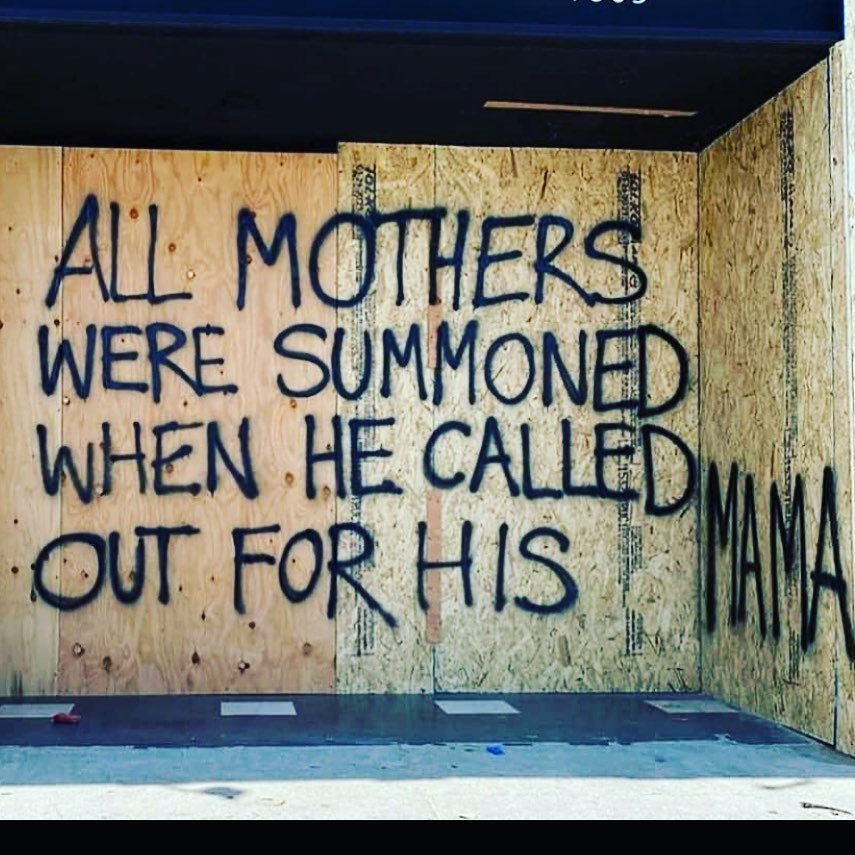 ALL MOTHERS
WERE SUMMONED
WHEN HE CALLED
OUT FOR HIS MAMA